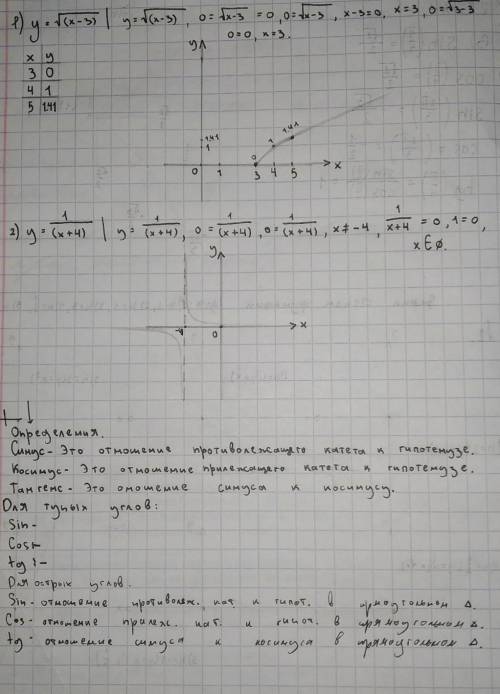 1) y = √(x-3) | y = √(x-3), 0 = √x-3 = 0, 0 = √x-3, x-3=0, x=3, 0=√3-3
0=0, x=3.
x y
3 0
4 1
5 1.41
y
1.41
1
0 1 3 4 5 x
0 1 1.41
2) y = 1/(x+4) | y = 1/(x+4), 0 = 1/(x+4), 0 = 1/(x+4), x ≠ -4, 1/x+4 = 0, 1=0,
x ∈ ∅.
y
-4 0 x
Определения.
Синус - Это отношение противолежащего катета к гипотенузе.
Косинус - Это отношение прилежащего катета к гипотенузе.
Тангенс - Это оношение синуса к косинусу.
Для тупых углов:
Sin -
Cos -
tg -
Для острых углов.
Sin - отношение противолеж. кат. к гипот. в прямоугольном Δ.
Cos - отношение прилеж. кат. к гипот. в прямоугольном Δ.
tg - отношение синуса к косинуса в прямоугольном Δ.